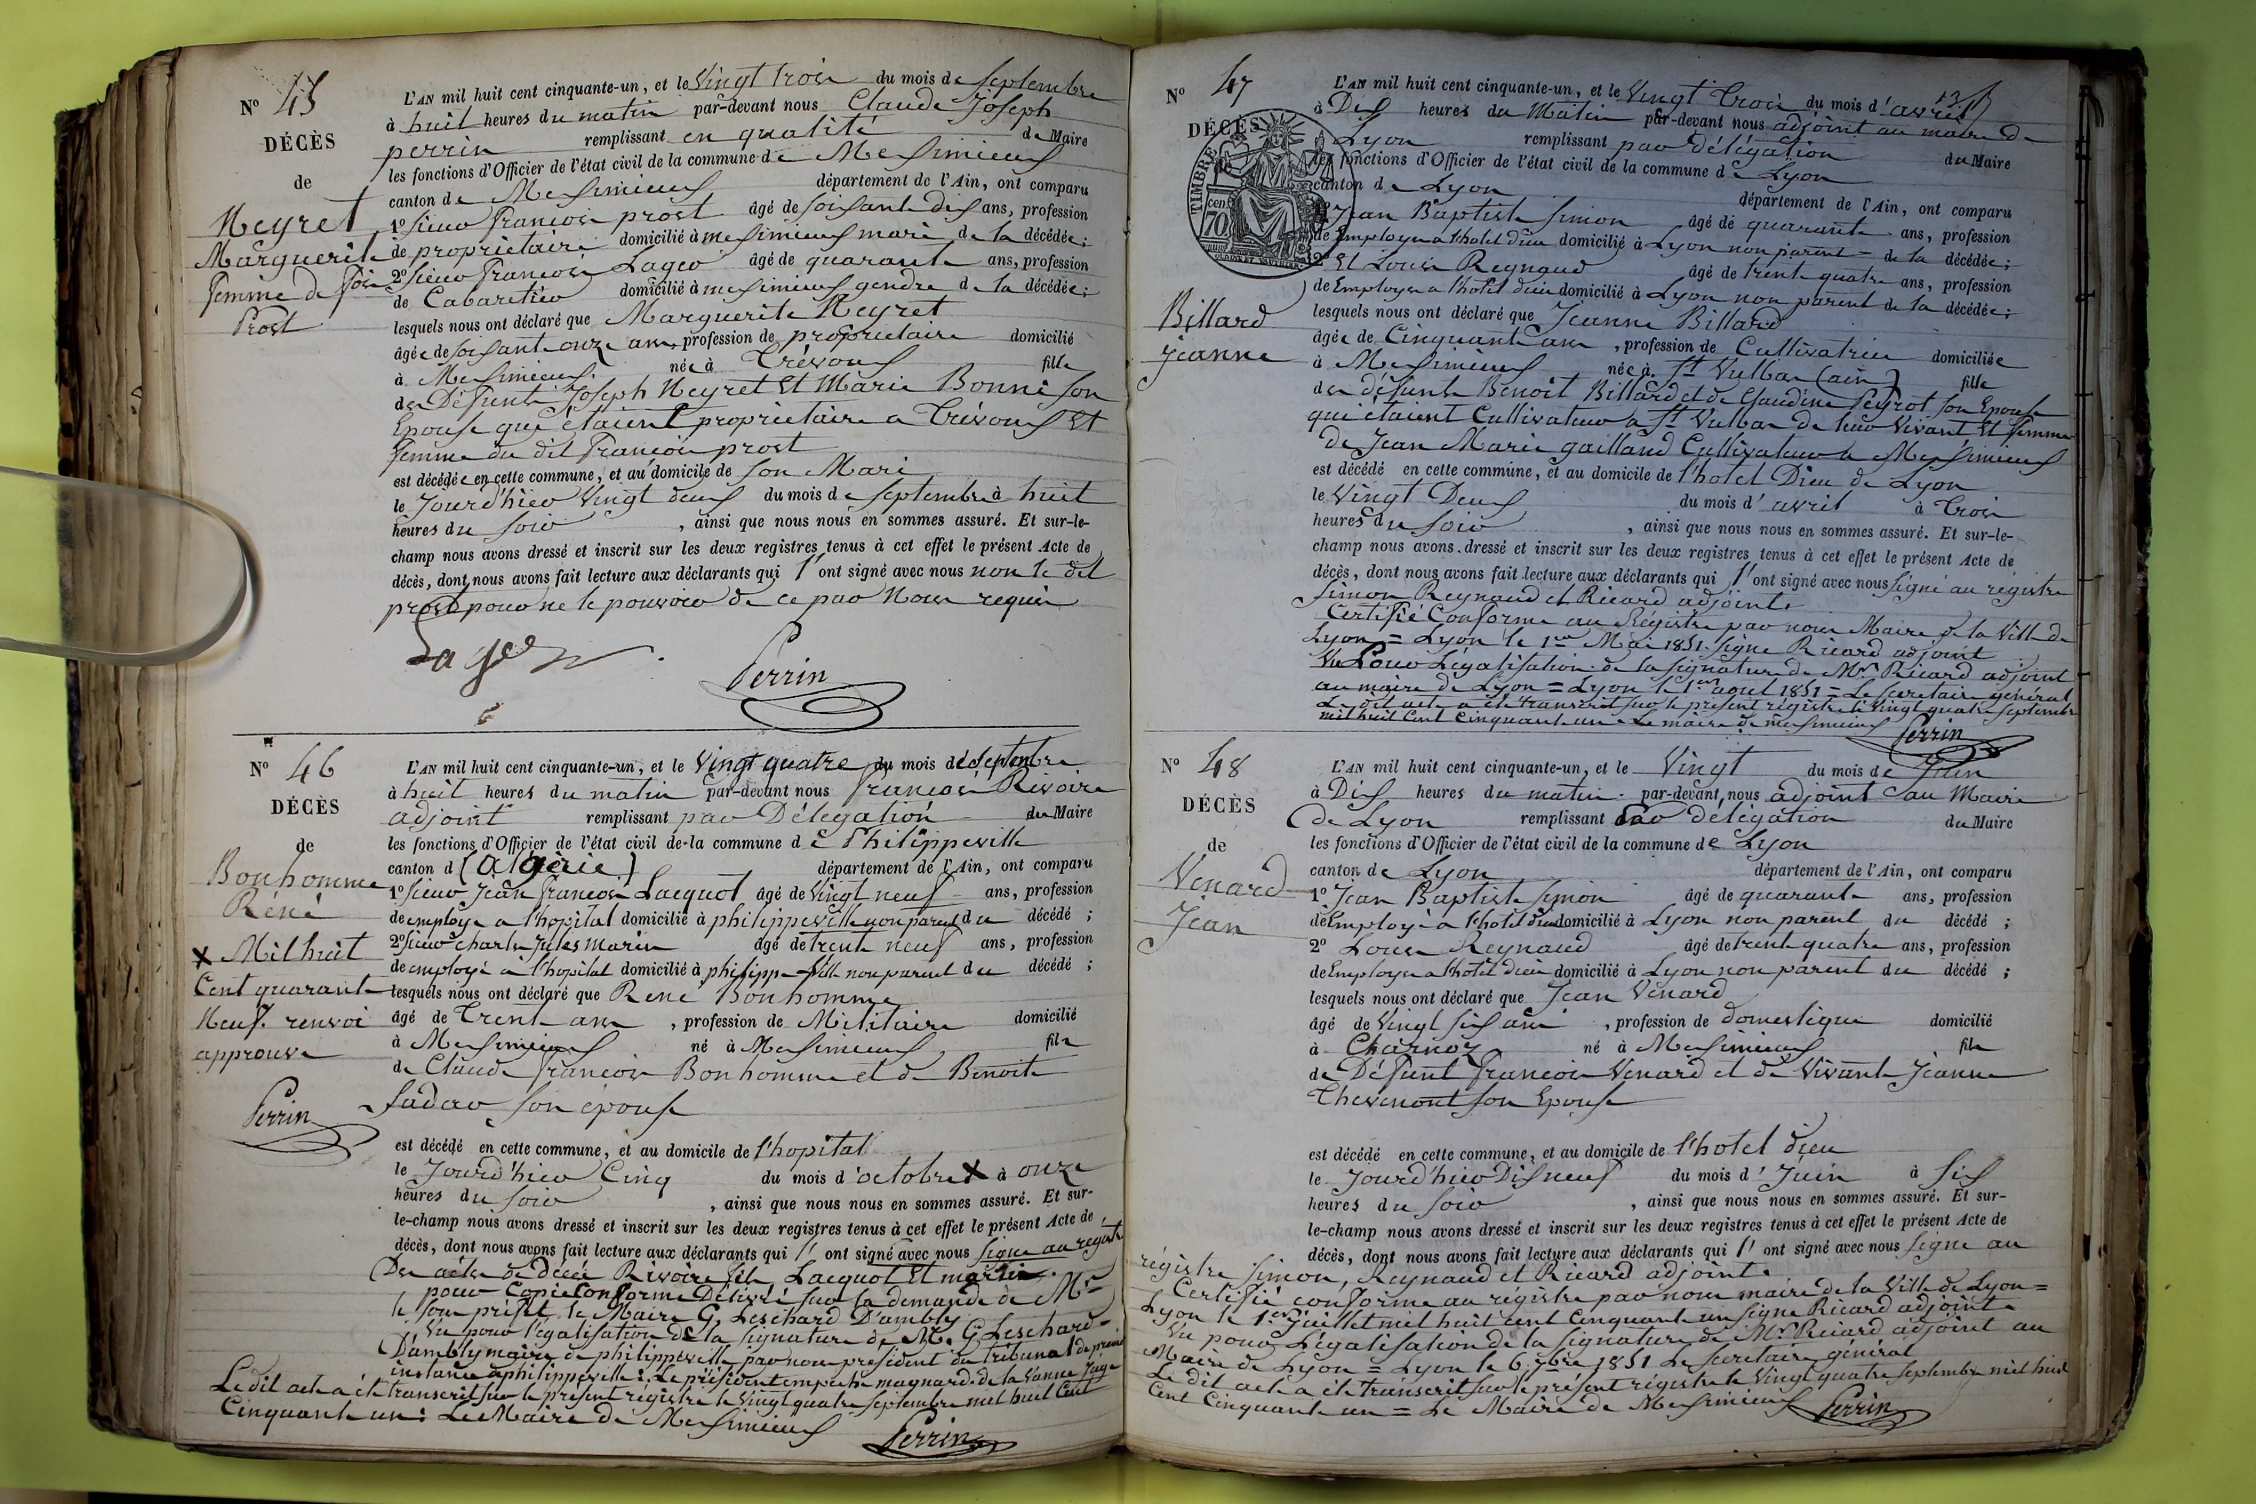 N° 45
DÉCÈS
de
Neyret
Marguerite
femme de fois
Prost
L'AN mil huit cent cinquante-un, et le Vingt trois du mois de Septembre
à huit heures du matin par-devant nous Claude Joseph
perrin remplissant en qualité de Maire
les fonctions d'Officier de l'état civil de la commune de Messimieux
canton de Messimieux département de l'Ain, ont comparu
1° sieur françois prost âgé de soisante dis ans, profession
de propriétaire domicilié à messimieux mari de la décédée;
2° sieur françois Lager âgé de quarante ans, profession
de Cabaretier domicilié à messimieux gendre de la décédée;
lesquels nous ont déclaré que Marguerite Neyret
âgée de soisante onze ans, profession de propriétaire domicilié
à Messimieux née à Trévoux fille
des Défunts Joseph Neyret Et Marie Bonne son
Epouse qui étaient propriétaire a Trévoux Et
femme du dit françois prost
est décédée en cette commune, et au domicile de son Mari
le Jourd'hier Vingt deux du mois de septembre à huit
heures du soir, ainsi que nous nous en sommes assuré. Et sur-le-
champ nous avons dressé et inscrit sur les deux registres tenus à cet effet le présent Acte de
décès, dont nous avons fait lecture aux déclarants qui l'ont signé avec nous non le dit
prost pour ne le pouvoir de ce par Nous requis
Lager
Perrin
N° 46
DÉCÈS
de
Bonhomme
Réné
X Mil huit
Cent quarante
Neuf. renvoi
approuvé
Perrin
L'AN mil huit cent cinquante-un, et le Vingt quatre du mois de Septembre
à huit heures du matin par-devant nous françois Rivoire
adjoint remplissant par Délégation du Maire
les fonctions d'Officier de l'état civil de la commune de Philippeville
canton d (Algérie) département de l'Ain, ont comparu
1° sieur Jean françois Lacquot âgé de Vingt neuf ans, profession
de employé a l'hopital domicilié à philippeville non parent du décédé;
2° sieur charles Jules Marin âgé de trente neuf ans, profession
de employé a l'hopital domicilié à philippeville non parent du décédé;
lesquels nous ont déclaré que Réné Bonhomme
âgé de Trente ans, profession de Militaire domicilié
à Messimieux né à Messimieux fils
de Claude françois Bonhomme et de Benoite
Sadar son épouse
est décédé en cette commune, et au domicile de l'hopital
le Jourd'hier Cinq du mois d'octobre X à onze
heures du soir, ainsi que nous nous en sommes assuré. Et sur-
le-champ nous avons dressé et inscrit sur les deux registres tenus à cet effet le présent Acte de
décès, dont nous avons fait lecture aux déclarants qui l'ont signé avec nous signé au registre
Des actes de décès Rivoire fils Lacquot Et marin.
pour Copie Conforme Délivré sur la demande de Mr
le sous préfet le Maire G. Leschard D'ambly
Vu pour légalisation de la signature de M. G. Leschard
D'ambly maire de philippeville par nous président du tribunal de première
instance a philippeville: Le président empeché magnard de la Vanne Juge
Le dit acte a été transcrit sur le présent régistre le Vingt quatre septembre mil huit Cent
Cinquante un: Le Maire de Messimieux Perrin
N° 47
DÉCÈS
de
TIMBRE
70 cen.
Billard
Jeanne
L'AN mil huit cent cinquante-un, et le Vingt Trois du mois d'avril
à Dix heures du Matin par-devant nous adjoint au maire de
Lyon remplissant par Délégation du Maire
les fonctions d'Officier de l'état civil de la commune de Lyon
canton de Lyon département de l'Ain, ont comparu
1° Jean Baptiste Simon âgé de quarante ans, profession
de Employé a l'hotel dieu domicilié à Lyon non parent de la décédée;
2° Et Louis Reynaud âgé de trente quatre ans, profession
de Employé a l'hotel dieu domicilié à Lyon non parent de la décédée;
lesquels nous ont déclaré que Jeanne Billard
âgée de Cinquante ans, profession de Cultivatrice domiciliée
à Messimieux née à St Vulbas (ain) fille
des défunts Benoit Billard et de Claudine Peyrot son Epouse
qui étaient Cultivateur a St Vulbas de leur Vivant Et femme
de Jean Marie gaillard Cultivateur a Messimieux
est décédé en cette commune, et au domicile de l'hotel Dieu de Lyon
le Vingt Deux du mois d'avril à Trois
heures du soir, ainsi que nous nous en sommes assuré. Et sur-le-
champ nous avons dressé et inscrit sur les deux registres tenus à cet effet le présent Acte de
décès, dont nous avons fait lecture aux déclarants qui l'ont signé avec nous signé au régistre
Simon Reynaud et Ricard adjoint.
Certifié Conforme au Régistre par nous Maire de la Ville de
Lyon = Lyon le 1er Mai 1851. signé Ricard adjoint
Vu Pour Légalisation de la signature de Mr Ricard adjoint
au maire de Lyon = Lyon le 1er aout 1851 = Le secretaire général
Le dit acte a été transcrit sur le présent régistre le Vingt quatre septembre
mil huit Cent Cinquante un = Le maire de Messimieux Perrin
N° 48
DÉCÈS
de
Venard
Jean
L'AN mil huit cent cinquante-un, et le Vingt du mois de Juin
à Dix heures du matin par-devant nous adjoint au Maire
de Lyon remplissant par délégation du Maire
les fonctions d'Officier de l'état civil de la commune de Lyon
canton de Lyon département de l'Ain, ont comparu
1° Jean Baptiste Simon âgé de quarante ans, profession
de Employé a l'hotel dieu domicilié à Lyon non parent du décédé;
2° Louis Reynaud âgé de trente quatre ans, profession
de Employé a l'hotel dieu domicilié à Lyon non parent du décédé;
lesquels nous ont déclaré que Jean Venard
âgé de Vingt six ans, profession de domestique domicilié
à Charnoz né à Messimieux fils
de Défunt françois Venard et de Vivante Jeanne
Thevenont son Epouse
est décédé en cette commune, et au domicile de l'hotel dieu
le Jourd'hier Dix neuf du mois d'Juin à Six
heures du soir, ainsi que nous nous en sommes assuré. Et sur-
le-champ nous avons dressé et inscrit sur les deux registres tenus à cet effet le présent Acte de
décès, dont nous avons fait lecture aux déclarants qui l'ont signé avec nous signé au
régistre Simon, Reynaud et Ricard adjoint.
Certifié conforme au régistre par nous maire de la Ville de Lyon =
Lyon le 1er Juillet mil huit cent Cinquante un signé Ricard adjoint
Vu pour Légalisation de la signature de Mr Ricard adjoint au
Maire de Lyon = Lyon le 6 7bre 1851 Le secretaire général
Le dit acte a été transcrit sur le présent régistre le Vingt quatre septembre mil huit
Cent Cinquante un = Le Maire de Messimieux Perrin